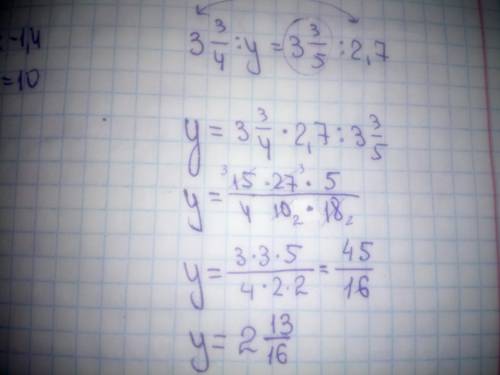 :-1,4
=10
3 3/4 : y = 3 3/5 : 2,7
y = 3 3/4 · 2,7 : 3 3/5
y = (³15 · 27³ · 5)/(4 · 10₂ · 18₂)
y = (3·3·5)/(4·2·2) = 45/16
y = 2 13/16